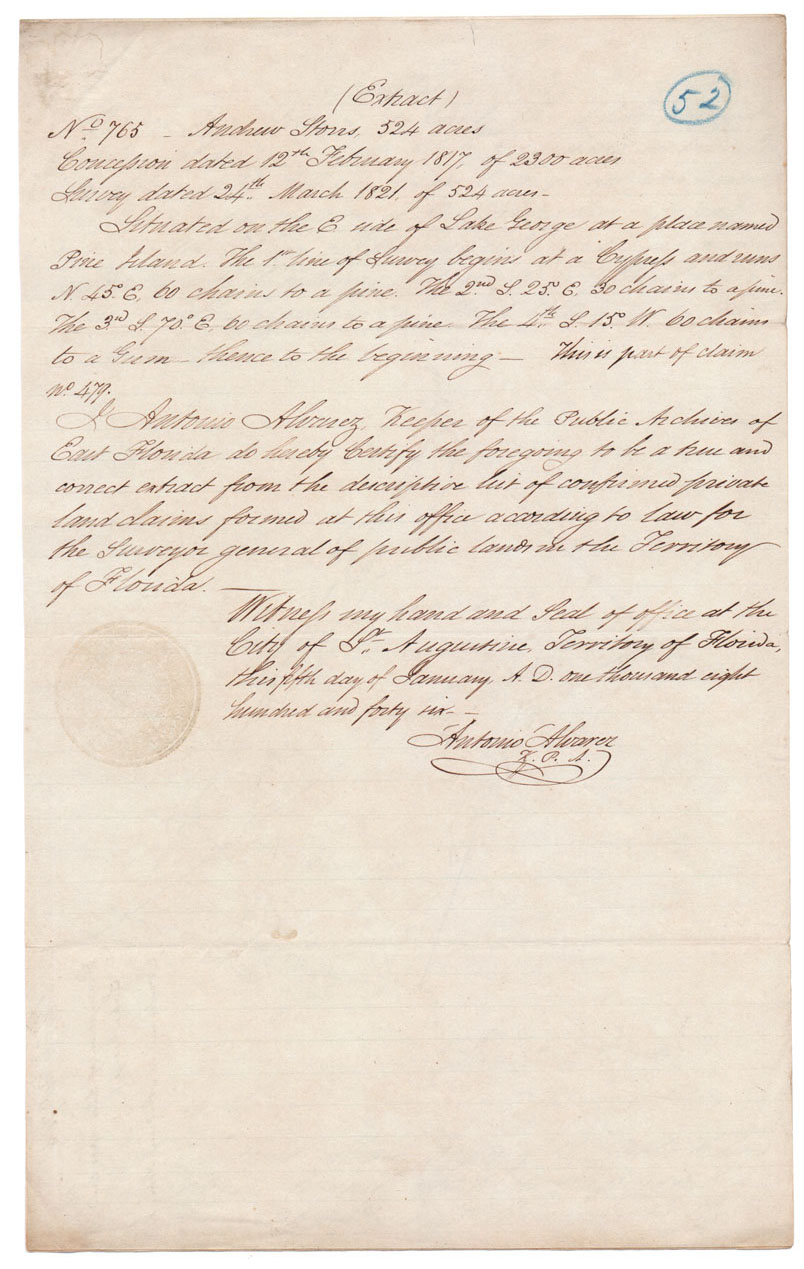 (Extract)
52
No 765 - Andrew Storrs, 524 acres
Concession dated 12th February 1817, of 2300 acres
Survey dated 24th March 1821, of 524 acres -
Situated on the E side of Lake George at a place named
Pine Island. The 1st line of survey begins at a Cypress and runs
N. 45° E, 60 chains to a pine. The 2nd S. 25° E, 30 chains to a pine.
The 3rd S. 70° E, 60 chains to a pine. The 4th S. 15° W. 60 chains
to a Gum - thence to the beginning - This is part of claim
no 479.
I Antonio Alvarez, Keeper of the Public Archives of
East Florida do hereby Certify the foregoing to be a true and
correct extract from the descriptive list of confirmed private
land claims formed at this office according to law for
the Surveyor general of public lands in the Territory
of Florida. —
Witness my hand and Seal of office at the
City of St. Augustine, Territory of Florida,
this fifth day of January, A. D. one thousand eight
hundred and forty six -
Antonio Alvarez
K. P. A.